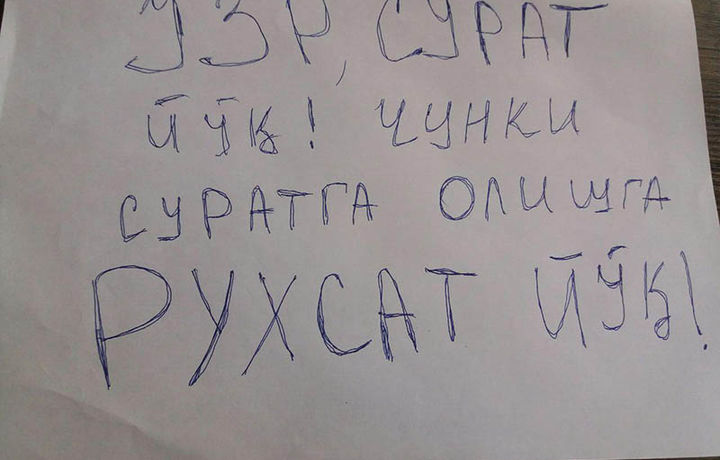 УЗР, СУРАТ
ЙЎҚ! ЧУНКИ
СУРАТГА ОЛИШГА
РУХСАТ ЙЎҚ!